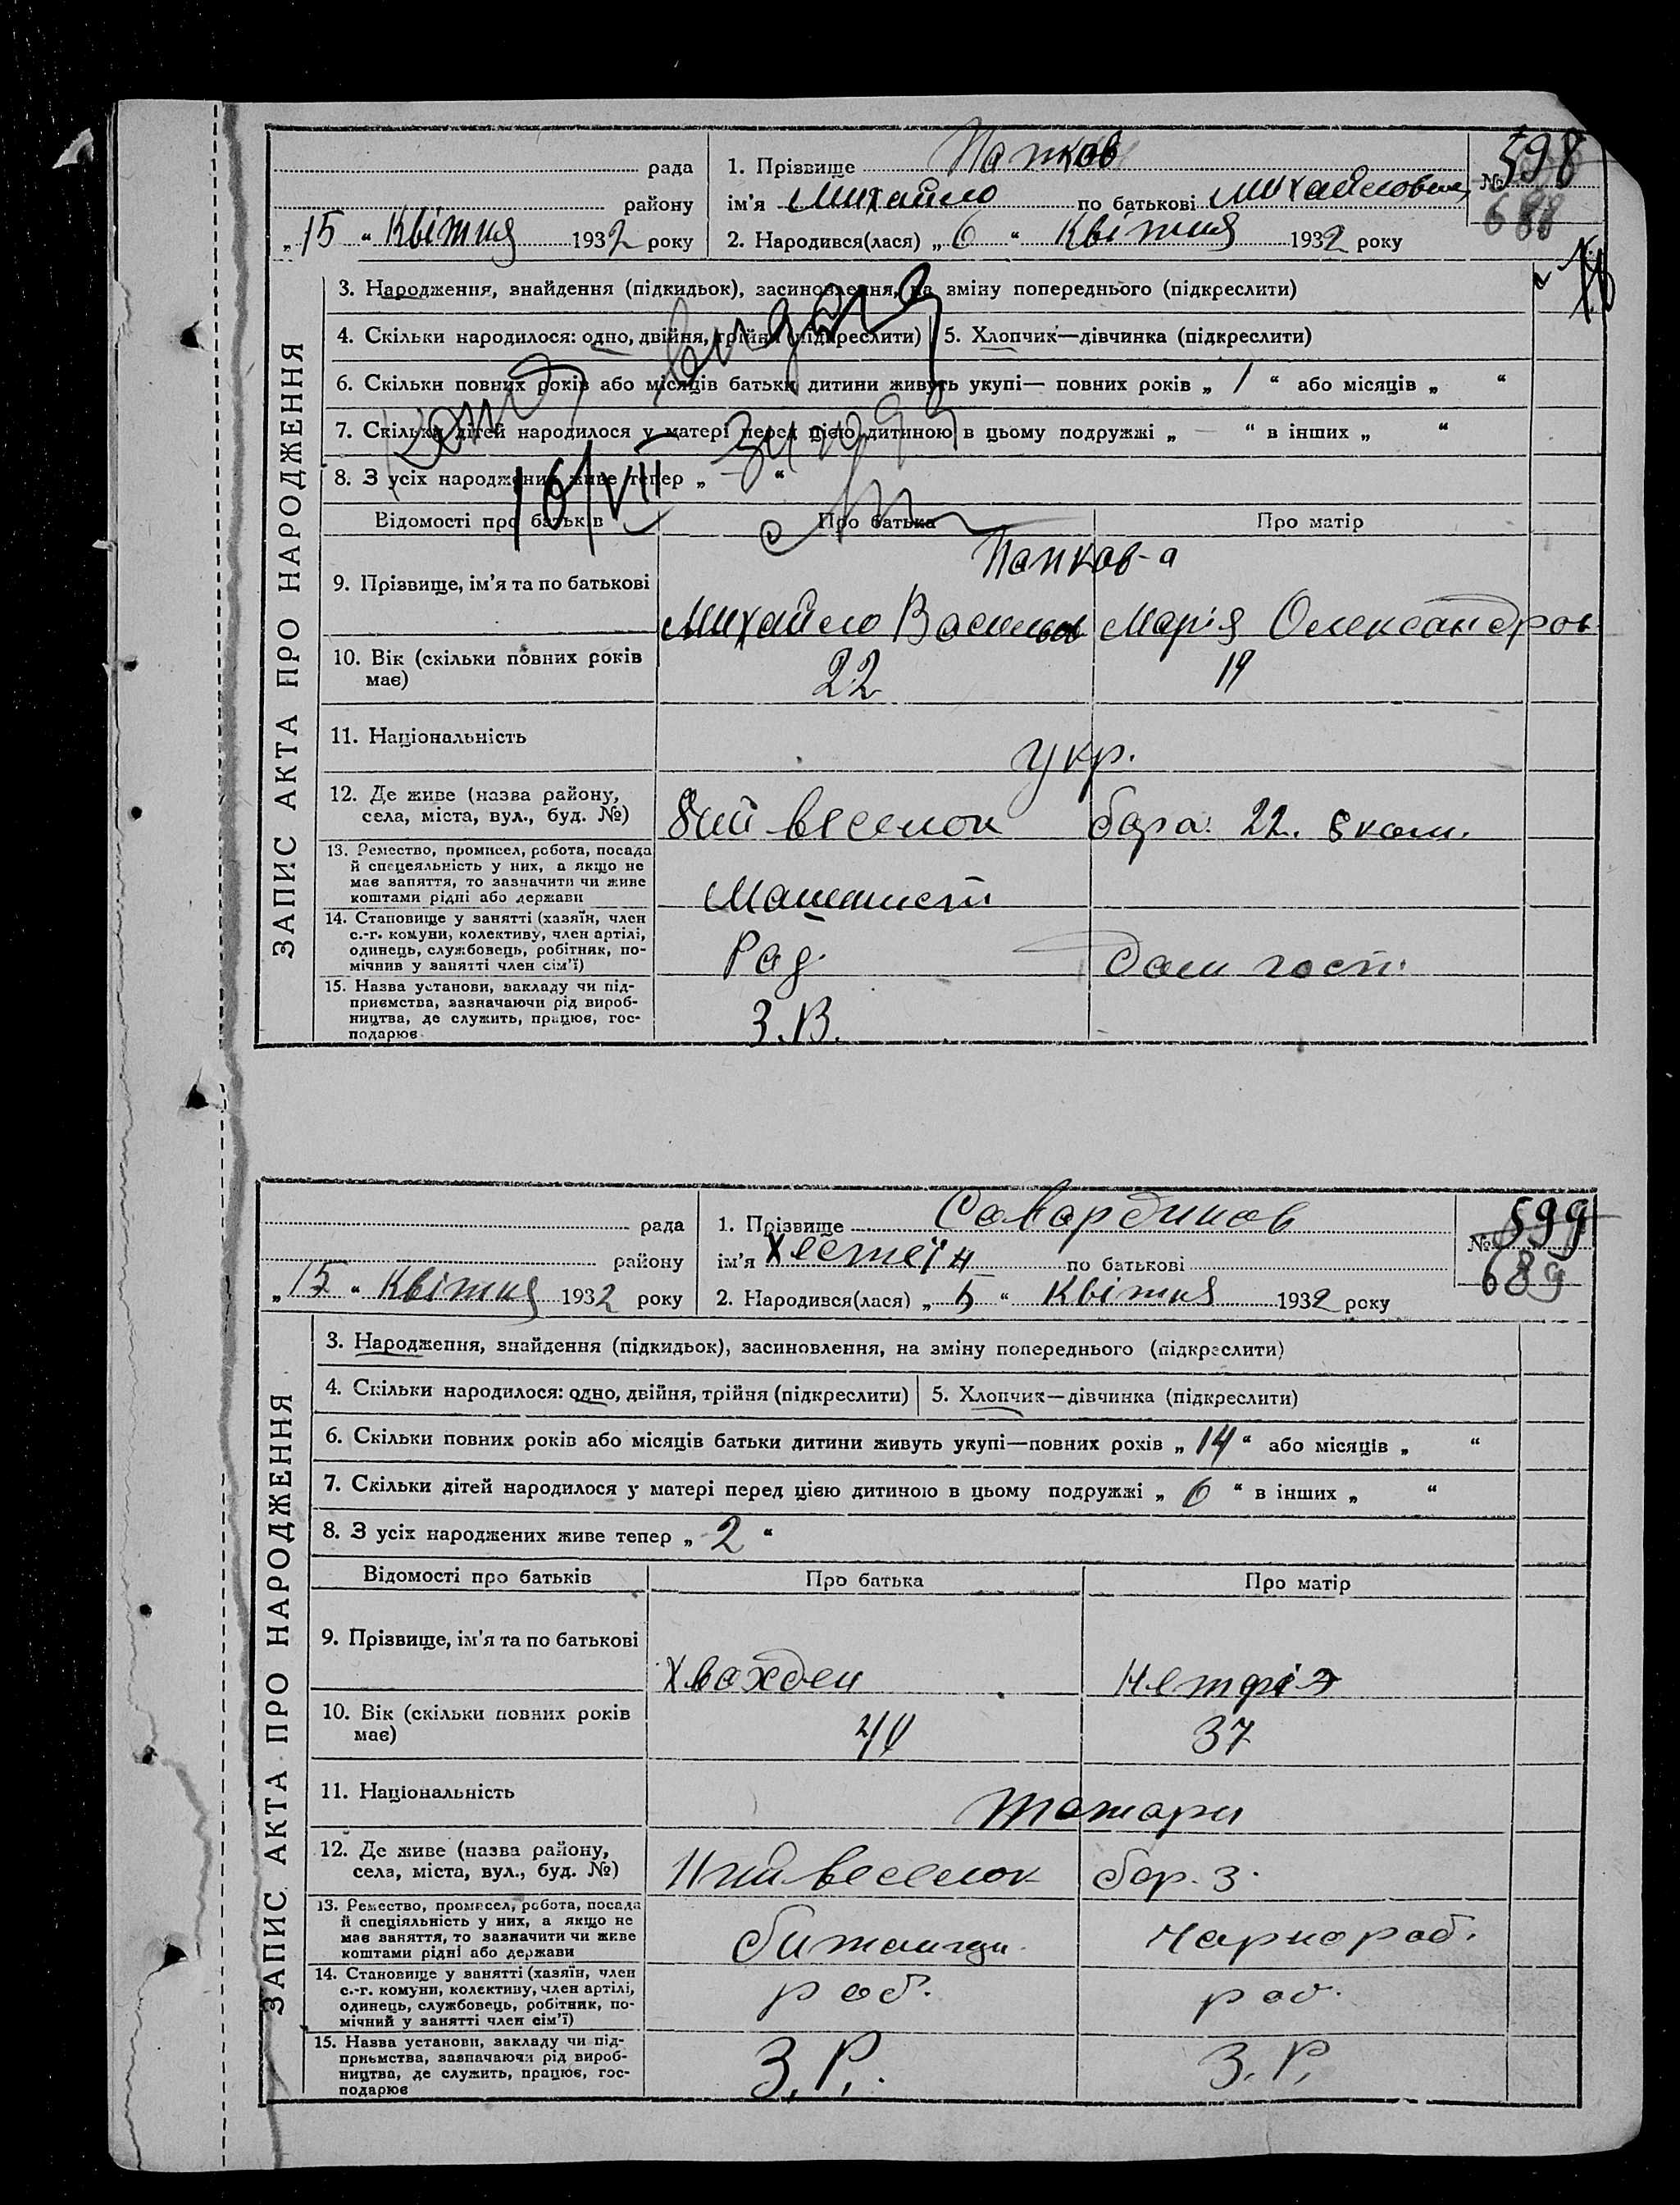 рада
1. Прізвище Папков
№ 598
району
ім'я Михайло по батькові Михайлович
688
„15“ Квітня 1932 року
2. Народився(лася) „6“ Квітня 1932 року
ЗАПИС АКТА ПРО НАРОДЖЕННЯ
3. Народження, знайдення (підкидьок), засиновлення, на зміну попереднього (підкреслити)
4. Скільки народилося: одно, двійня, трійня (підкреслити)
5. Хлопчик—дівчинка (підкреслити)
6. Скільки повних років або місяців батьки дитини живуть укупі— повних років „ 1 “ або місяців „ “
7. Скільки дітей народилося у матері перед цією дитиною в цьому подружжі „ — “ в інших „ “
8. З усіх народжених живе тепер „ — “
16/VII
Відомості про батьків
Про батька
Про матір
9. Прізвище, ім'я та по батькові
Папков-а
Михайло Васильов
Марія Олександров
10. Вік (скільки повних років має)
22
19
11. Національність
укр.
12. Де живе (назва району, села, міста, вул., буд. №)
8ий веселок
бара. 22. 8 ком.
13. Ремество, промисел, робота, посада й спецеяльність у них, а якщо не має заняття, то зазначити чи живе коштами рідні або держави
Машинист
14. Становище у занятті (хазяїн, член с.-г. комуни, колективу, член артілі, одинець, службовець, робітник, помічнив у занятті член сім'ї)
Дом госп.
15. Назва установи, закладу чи підприємства, зазначаючи рід виробництва, де служить, працює, господарює
З.В.
рада
1. Прізвище Савардинов
№ 599
району
ім'я Хестеін по батькові
689
„15“ Квітня 1932 року
2. Народився(лася) „5“ Квітня 1932 року
ЗАПИС АКТА ПРО НАРОДЖЕННЯ
3. Народження, знайдення (підкидьок), засиновлення, на зміну попереднього (підкреслити)
4. Скільки народилося: одно, двійня, трійня (підкреслити)
5. Хлопчик—дівчинка (підкреслити)
6. Скільки повних років або місяців батьки дитини живуть укупі—повних років „ 14 “ або місяців „ “
7. Скільки дітей народилося у матері перед цією дитиною в цьому подружжі „ 6 “ в інших „ “
8. З усіх народжених живе тепер „ 2 “
Відомості про батьків
Про батька
Про матір
9. Прізвище, ім'я та по батькові
Хвахден
10. Вік (скільки повних років має)
44
37
11. Національність
татари
12. Де живе (назва району, села, міста, вул., буд. №)
11ий веселок
бар. 3.
13. Ремество, промисел, робота, посада й спеціяльність у них, а якщо не має заняття, то зазначити чи живе коштами рідні або держави
Чарнороб.
14. Становище у занятті (хазяїн, член с.-г. комуни, колективу, член артілі, одинець, службовець, робітник, помічний у занятті член сім'ї)
роб.
роб.
15. Назва установи, закладу чи підприємства, зазначаючи рід виробництва, де служить, працює, господарює
З.Р.
З.Р.